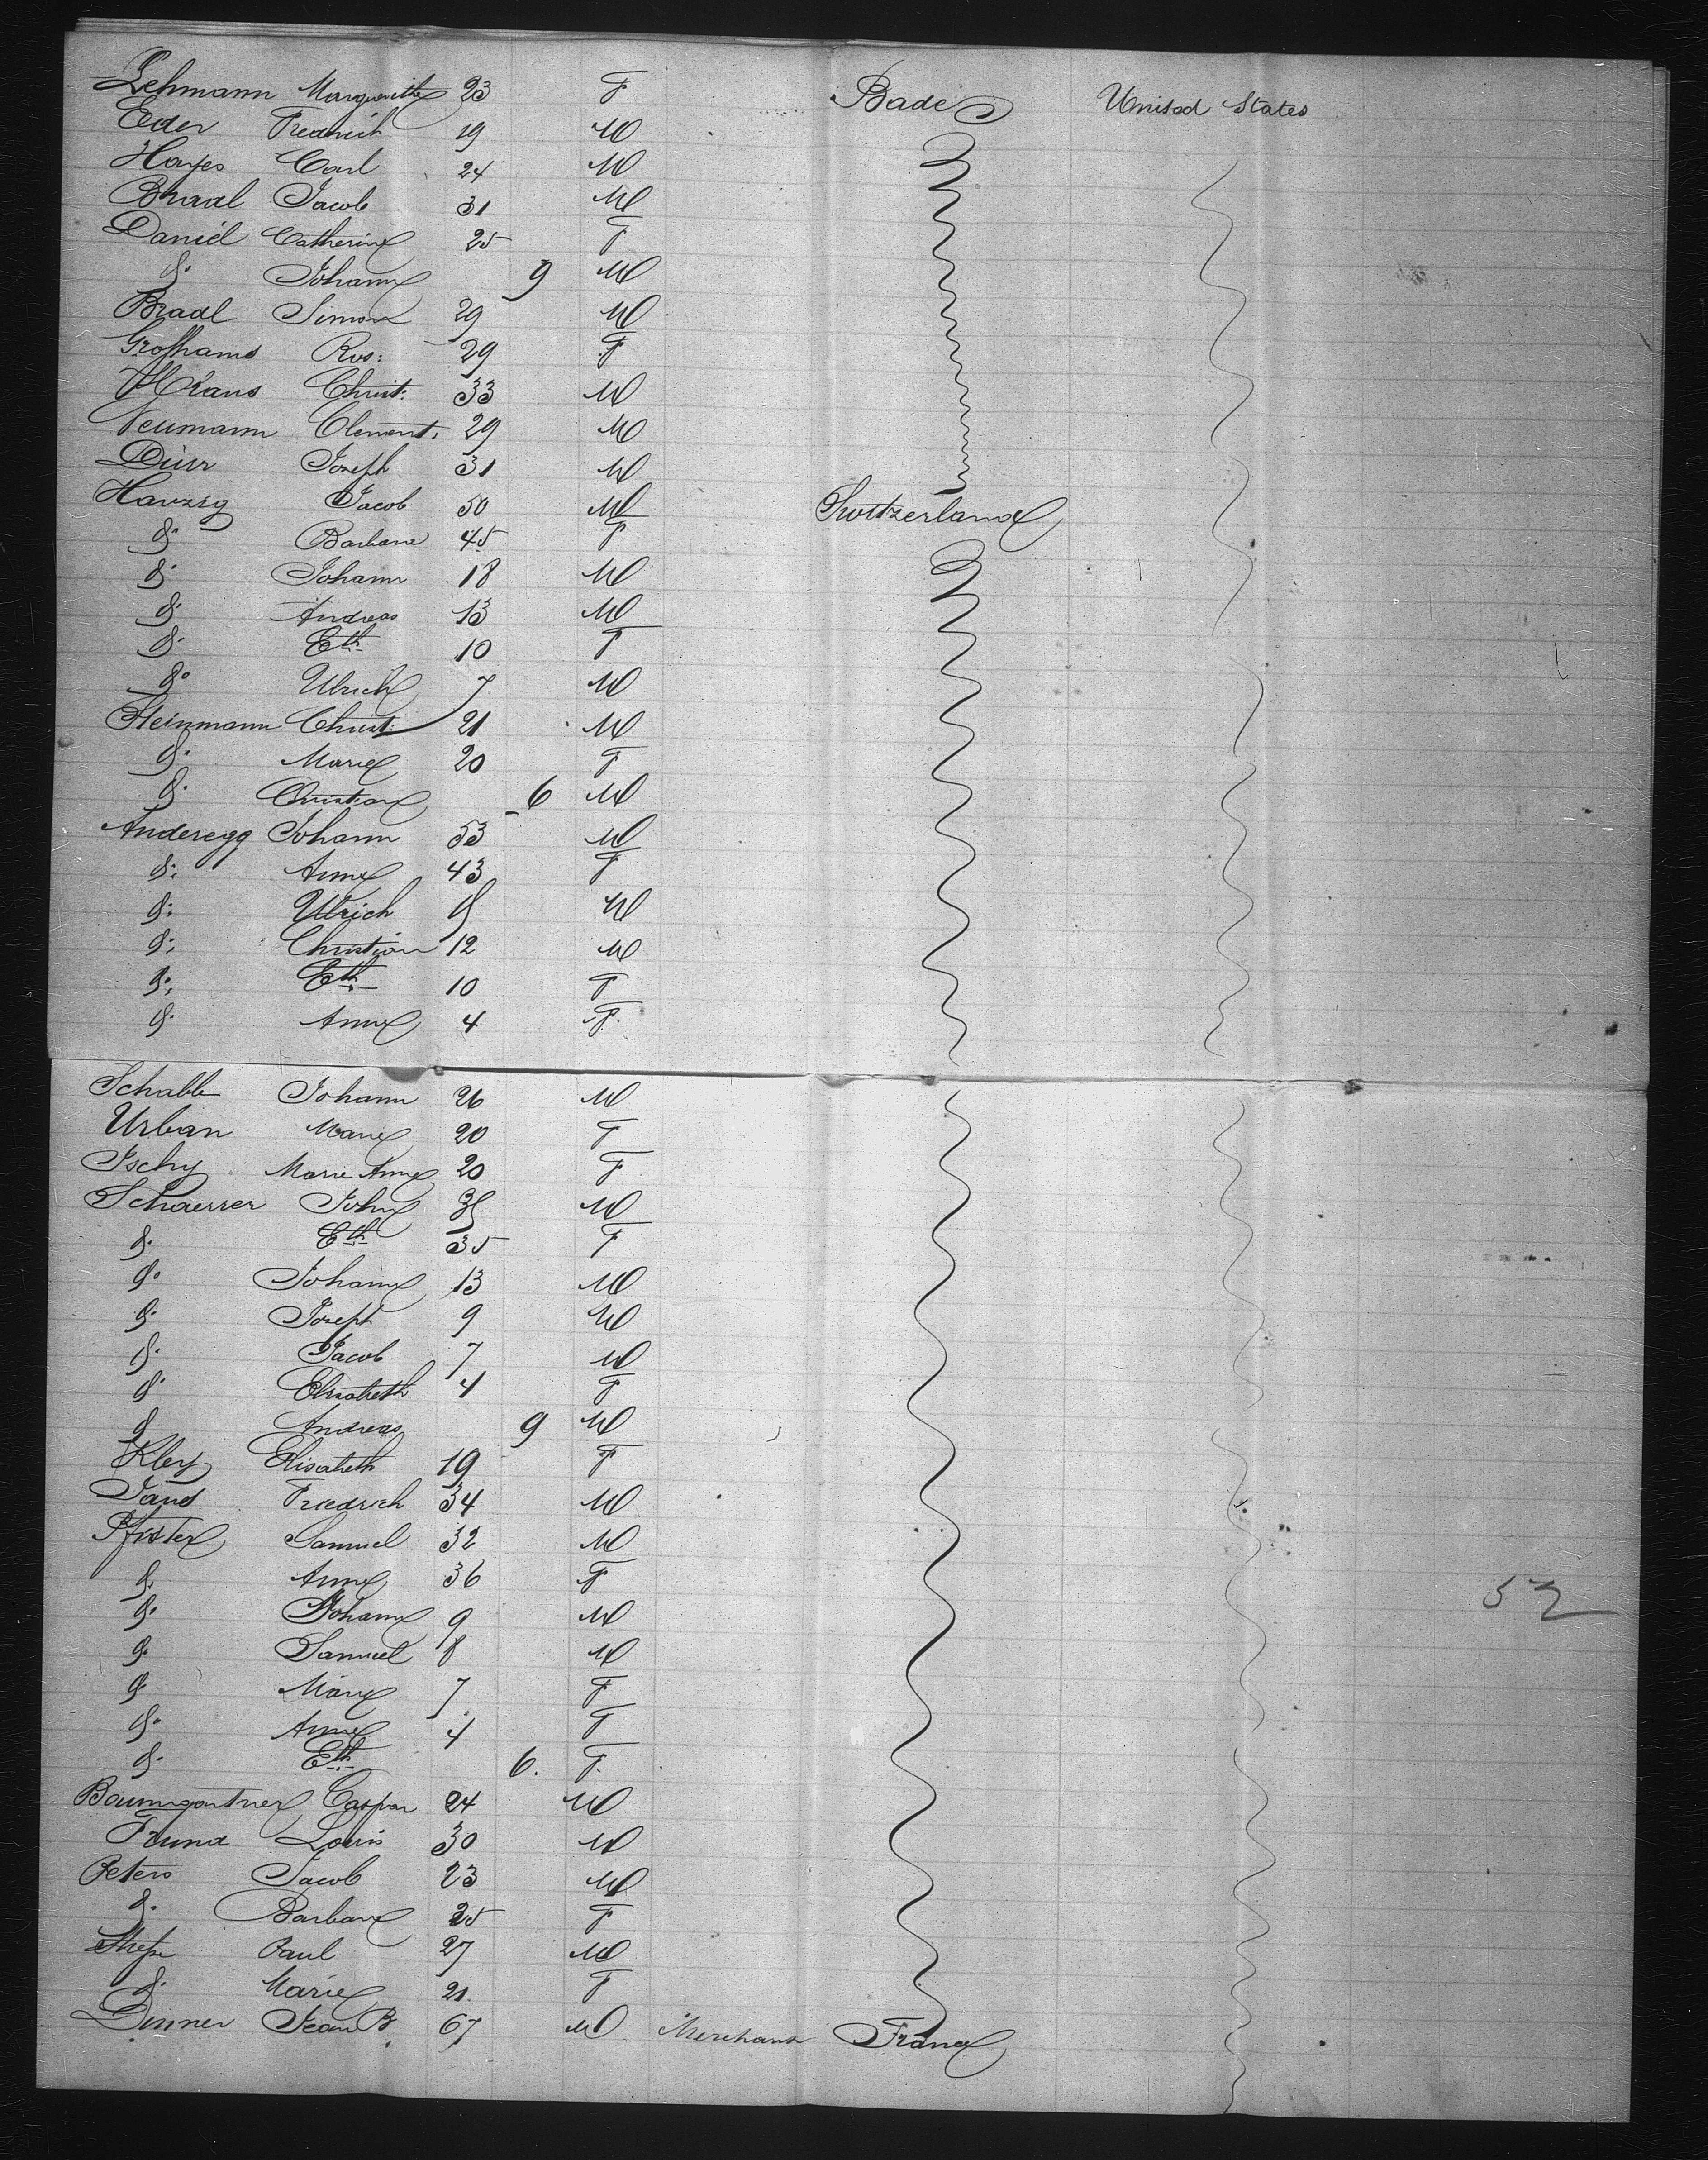 Lehmann Marguerithe 23 F Bade United States
Eder Fredrich 19 M
Hayes Carl 24 M
Bradl Jacob 31 M
Daniel Catherine 25 F
do Johann 9 M
Bradl Simon 29 M
Ros: 29 F
Christ: 33 M
Neumann Clement. 29 M
Dürr Joseph 31 M
Havzsig Jacob 50 M Switzerland
do Barbara 45 F
do Johann 18 M
do Andreas 13 M
do Eth 10 F
do Ulrich 7 M
Steinmann Christ: 21 M
do Marie 20 F
do Christian 6 M
Anderegg Johann 53 M
do Anne 43 F
do Ulrich M
do Christian 12 M
do Eth 10 F
do Anne 4 F.
Schable Johann 26 M
Urban Marie 20 F
Tschy Marie Anne 20 F
Schaerrer John M
do Eth 35 F
do Johann 13 M
do Joseph 9 M
do Jacob 7 M
do Elisabeth 4 F
do Andreas 9 M
Kley Elisabeth 19 F
Friedrich 34 M
Pfister Samuel 32 M
do Anne 36 F
do Johann 9 M 52
do Samuel 8 M
do Marie 7 F
do Anne 4 F
do Eth 6. F.
Baumgartner Caspar 24 M
Frund Louis 30 M
Peters Jacob 23 M
do Barbara 25 F
Paul 27 M
do Marie 21. F
Dinner Jean B. 67 M Merchant France